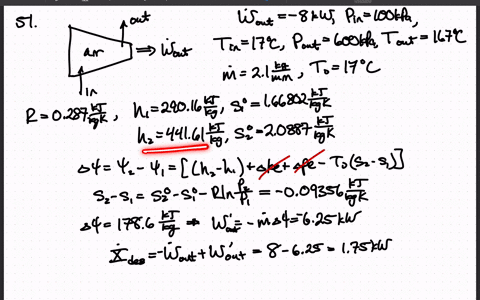 51.
out
air
⇒ Ẇout
in
Ẇout = -8 kW, Pin = 100 kPa,
Tin = 17°C, Pout = 600 kPa, Tout = 167°C
ṁ = 2.1 kg/min, T₀ = 17°C
R = 0.287 kJ/kgK, h₁ = 290.16 kJ/kg, s₁° = 1.66802 kJ/kgK
h₂ = 441.61 kJ/kg, s₂° = 2.0887 kJ/kgK
Δψ = ψ₂ - ψ₁ = [(h₂-h₁) + Δke + Δpe - T₀(s₂-s₁)]
s₂-s₁ = s₂° - s₁° - R ln P₂/P₁ = -0.09356 kJ/kgK
Δψ = 178.6 kJ/kg ⇒ Ẇ'out = -ṁΔψ = -6.25 kW
Ẋdes = -Ẇout + Ẇ'out = 8 - 6.25 = 1.75 kW